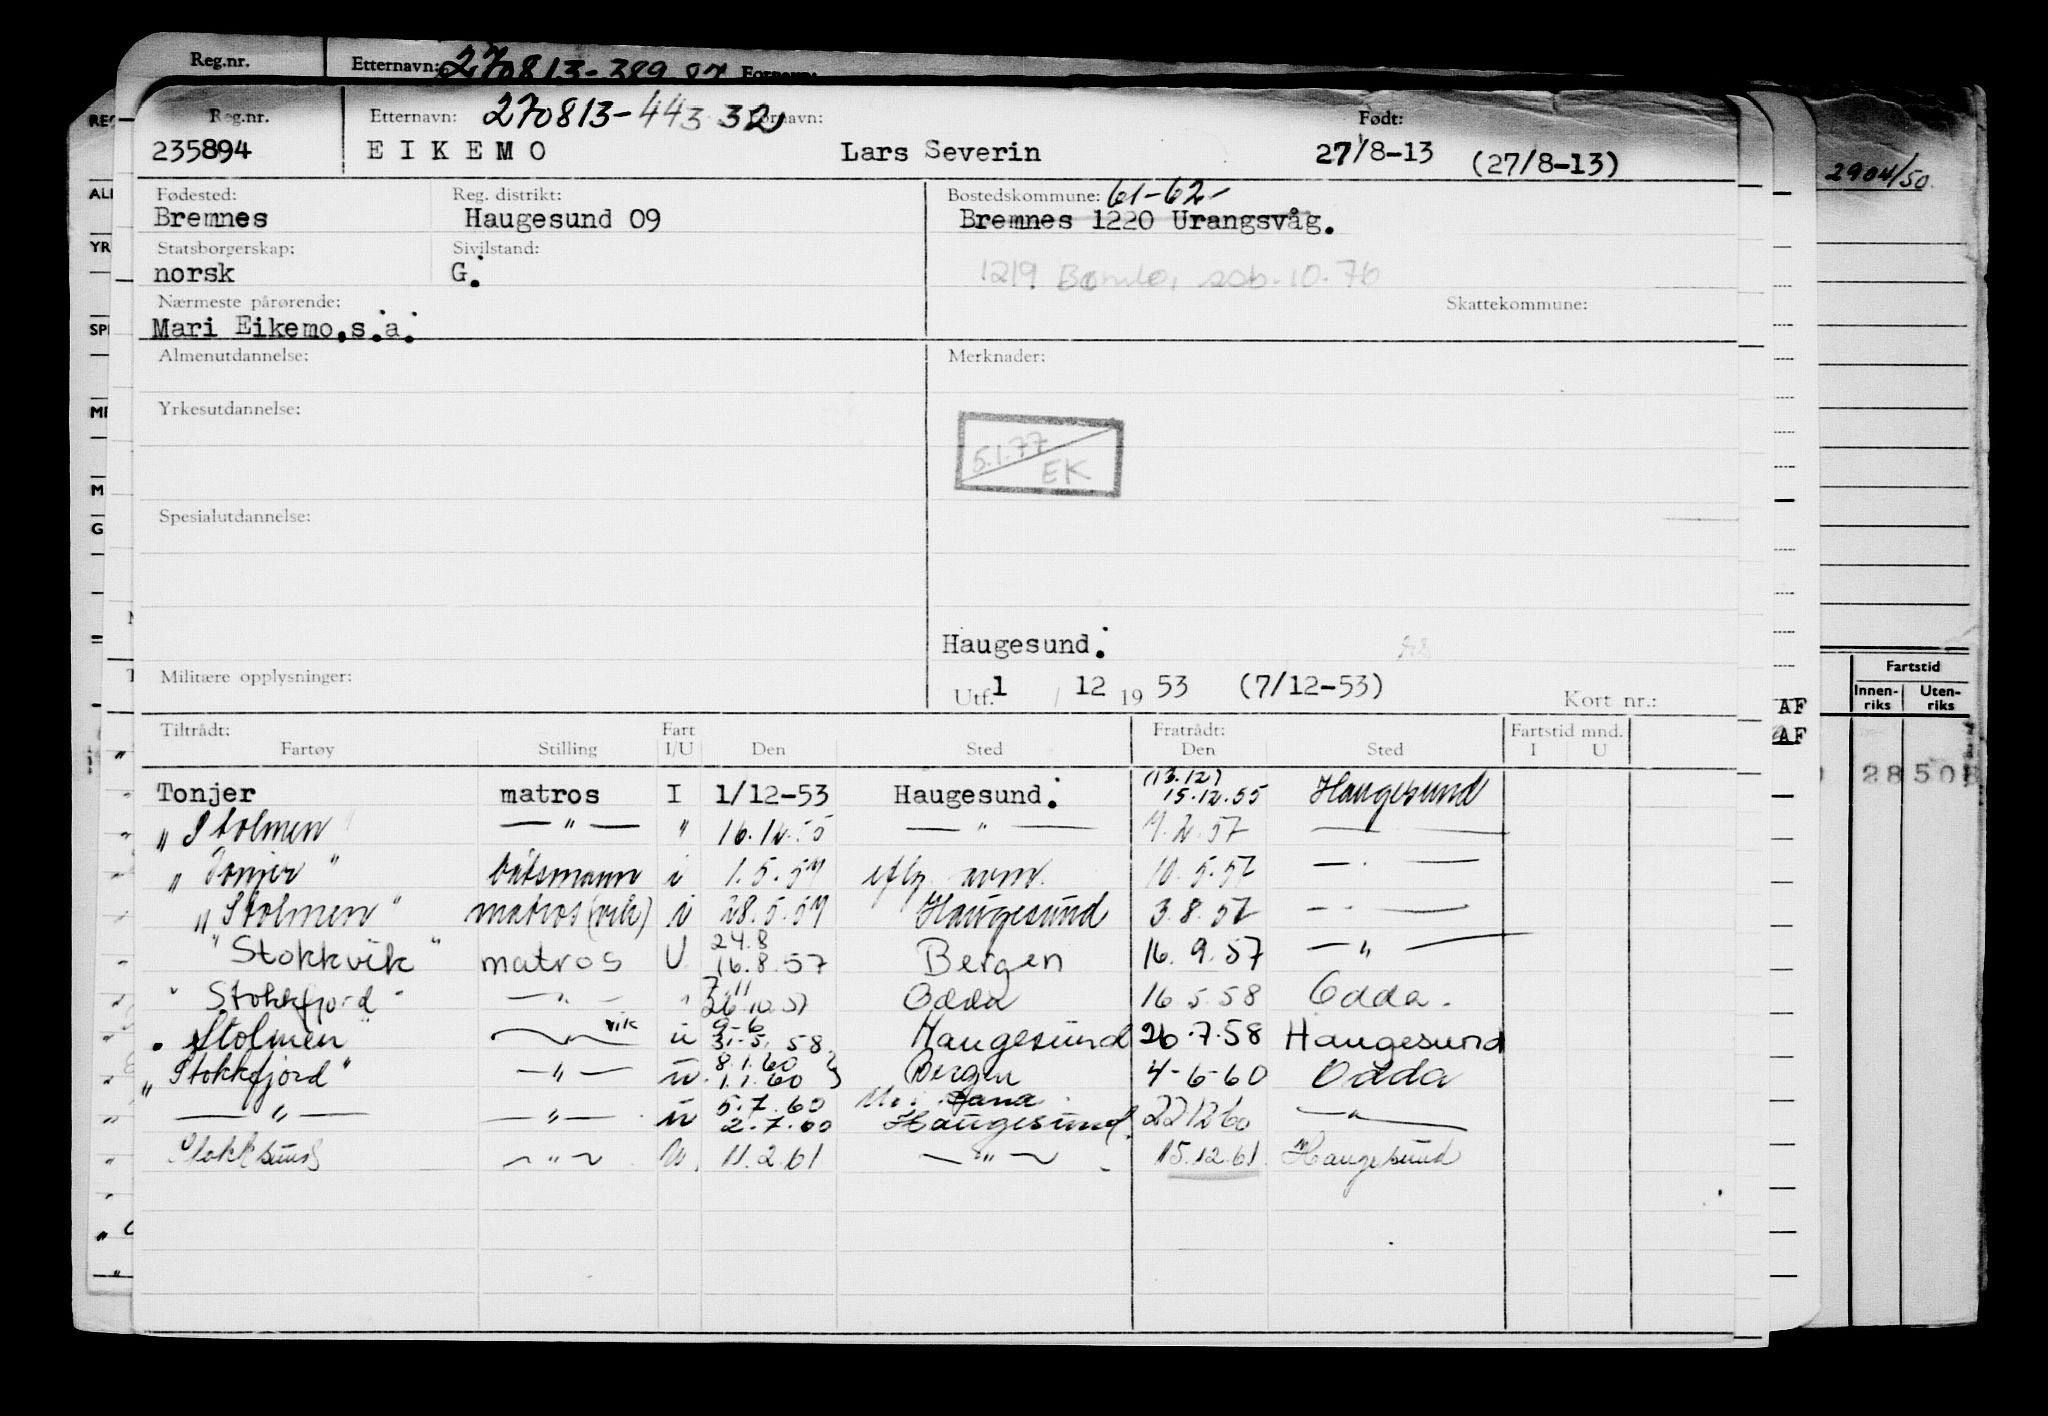 Reg.nr. Etternavn: 270813-389 Fornavn:
Reg.nr. Etternavn: 270813-44332 Fornavn: Født:
235894 EIKEMO Lars Severin 27/8-13 (27/8-13)
2904/50
Fødested: Reg. distrikt: Bostedskommune: 61-62-
Bremnes Haugesund 09 Bremnes 1220 Urangsvåg.
Statsborgerskap: Sivilstand:
norsk G. 1219 Bømlo, 10.76
Nærmeste pårørende: Skattekommune:
Mari Eikemo, s.a.
Almenutdannelse: Merknader:
Yrkesutdannelse:
5.1.77
EK
Spesialutdannelse:
Haugesund.
Militære opplysninger:
Utf. 1 / 12 19 53 (7/12-53) Kort nr.:
Fartstid
Innen-riks Uten-riks
AF
AF
28508
Tiltrådt: Fart Fratrådt: Fartstid mnd.
Fartøy Stilling I/U Den Sted Den Sted I U
Tonjer matros I 1/12-53 Haugesund. (13.12) 15.12.55 Haugesund
"Stolmen — " — " 16.12.55 — " — 4.2.57 —
"Tonjer" båtsmann i 1.5.57 10.5.57 — " —
"Stolmen" matros (vik) i 28.5.57 Haugesund 3.8.57 — " —
"Stokkvik" matros U 24.8 16.8.57 Bergen 16.9.57 — " —
"Stokkfjord" — " — " 7.11 26.10.57 Odda 16.5.58 Odda.
"Stolmen" — " — vik u 9-6 31.5.58 Haugesund 26.7.58 Haugesund
"Stokkfjord" — " — u. 8.1.60 1.1.60 } Bergen 4-6-60 Odda
— " — — " — u 5.7.60 2.7.60 Haugesund 22 12 60 — " —
Stokksund — " — u. 11.2.61 — " — 15.12.61 Haugesund